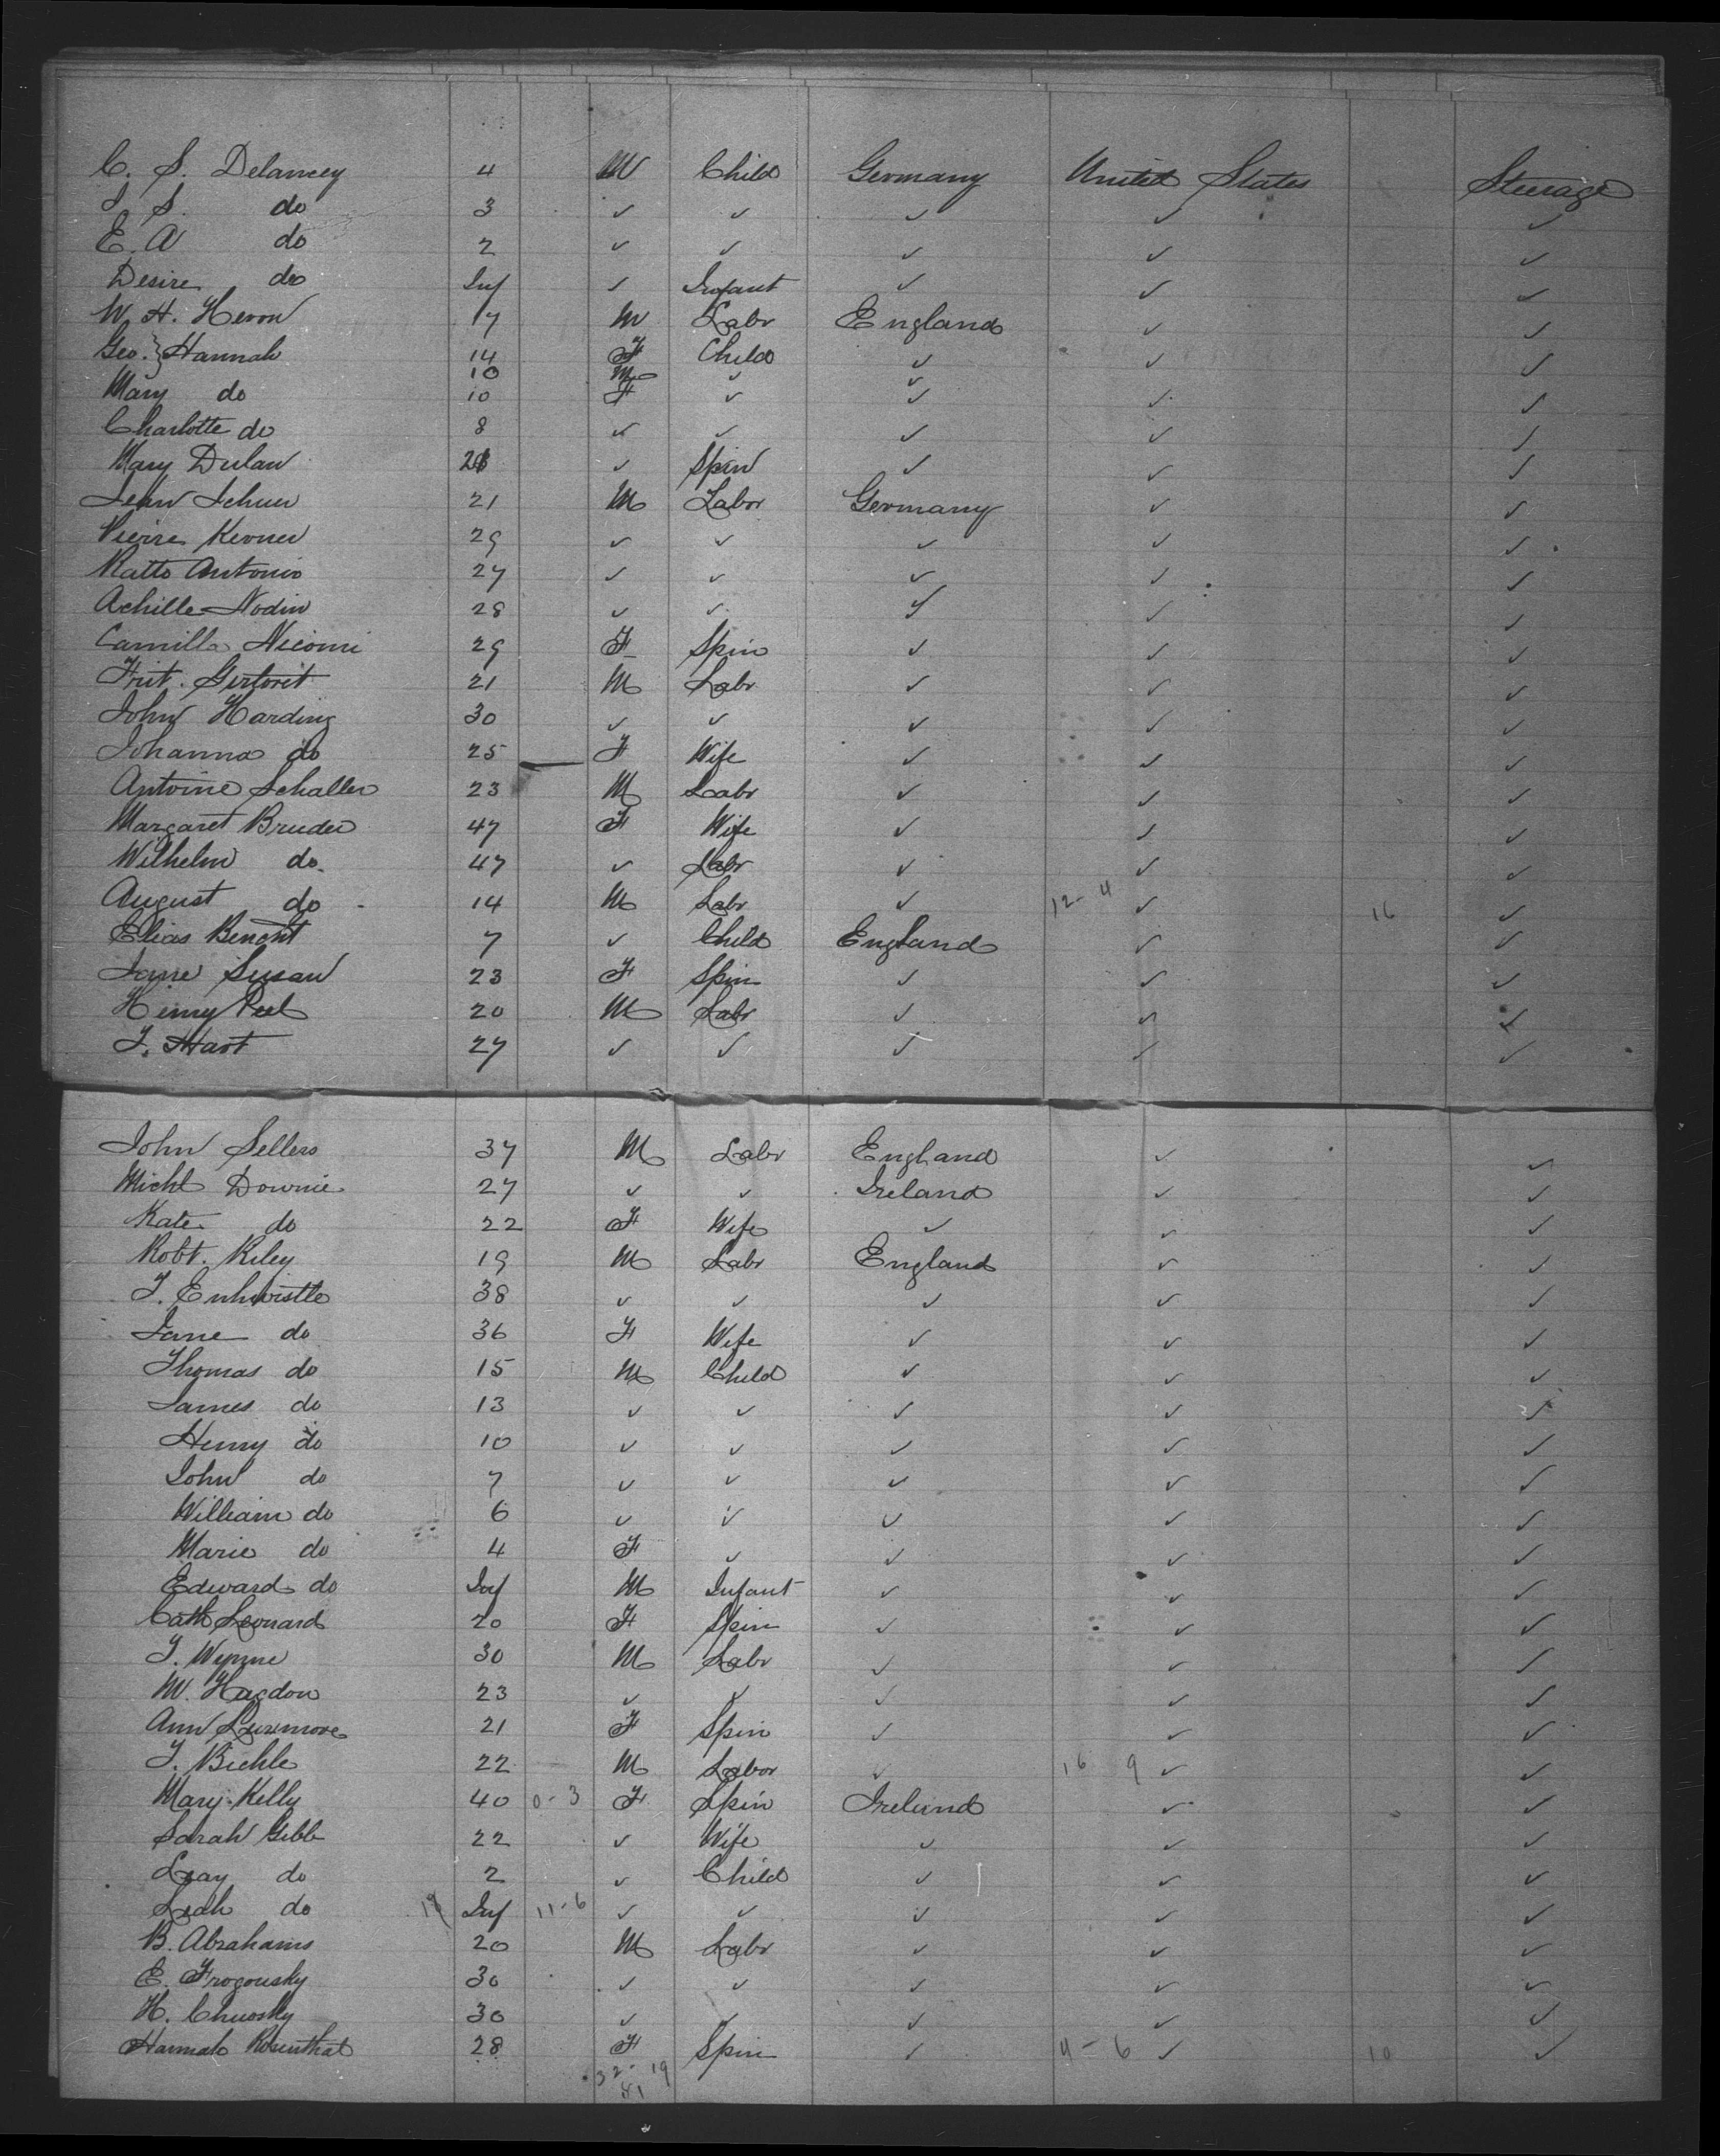 C. S. Delancey 4 M Child Germany United States Steerage
J S. do 3 ✓ ✓ ✓ ✓ ✓
E. A do 2 ✓ ✓ ✓ ✓ ✓
Desire do Inf ✓ Infant ✓ ✓ ✓
W. H. Heron 17 M Labr England ✓ ✓
Geo. } Hannah 14 F Child ✓ ✓ ✓
10 M ✓ ✓
Mary do 10 F ✓ ✓ ✓ ✓
Charlotte do 8 ✓ ✓ ✓ ✓ ✓
Mary Dulan ✓ Spin ✓ ✓ ✓
21 M Labor Germany ✓ ✓
Pierre Kerner 29 ✓ ✓ ✓ ✓ ✓
Ratto Antonio 27 ✓ ✓ ✓ ✓ ✓
Achille Nodin 28 ✓ ✓ ✓ ✓ ✓
Camilla Nicomi 29 F Spin ✓ ✓ ✓
Frit. 21 M Labr ✓ ✓ ✓
John Harding 30 ✓ ✓ ✓ ✓ ✓
Johanna do 25 F Wife ✓ ✓ ✓
Antoine Schaller 23 M Labr ✓ ✓ ✓
Margaret Bruder 47 F Wife ✓ ✓ ✓
Wilhelm do 47 ✓ Labr ✓ ✓ ✓
August do 14 M Labr ✓ 12-4 ✓ 16 ✓
Elias Benont 7 ✓ Child England ✓ ✓
Jane Susan 23 F Spin ✓ ✓ ✓
Henry Peel 20 M Labr ✓ ✓ ✓
J. Hart 27 ✓ ✓ ✓ ✓ ✓
John Sellers 37 M Labr England ✓ ✓
Michl Downie 27 ✓ ✓ Ireland ✓ ✓
Kate do 22 F Wife ✓ ✓ ✓
Robt. Riley 19 M Labr England ✓ ✓
J. Enhwistle 38 ✓ ✓ ✓ ✓ ✓
Jane do 36 F Wife ✓ ✓ ✓
Thomas do 15 M Child ✓ ✓ ✓
James do 13 ✓ ✓ ✓ ✓ ✓
Henry do 10 ✓ ✓ ✓ ✓ ✓
John do 7 ✓ ✓ ✓ ✓ ✓
William do 6 ✓ ✓ ✓ ✓ ✓
Marie do 4 F ✓ ✓ ✓ ✓
Edward do Inf M Infant ✓ ✓ ✓
Cath Leonard 20 F Spin ✓ ✓ ✓
J. Wynne 30 M Labr ✓ ✓ ✓
W. Hagdon 23 ✓ ✓ ✓ ✓ ✓
Ann Luxmore 21 F Spin ✓ ✓ ✓
J. Bickle 22 M Labor ✓ 16 9 ✓ ✓
Mary Kelly 40 0-3 F Spin Ireland ✓ ✓
Sarah Gibb 22 ✓ Wife ✓ ✓ ✓
do 2 ✓ Child ✓ ✓ ✓
Leah do Inf 11-6 ✓ ✓ ✓ ✓ ✓
B. Abrahams 20 M Labr ✓ ✓ ✓
E. Frogousky 30 ✓ ✓ ✓ ✓ ✓
H. 30 ✓ ✓ ✓ ✓ ✓
Hannah Rosenthal 28 F Spin ✓ 4-6 ✓ 10 ✓
32-19